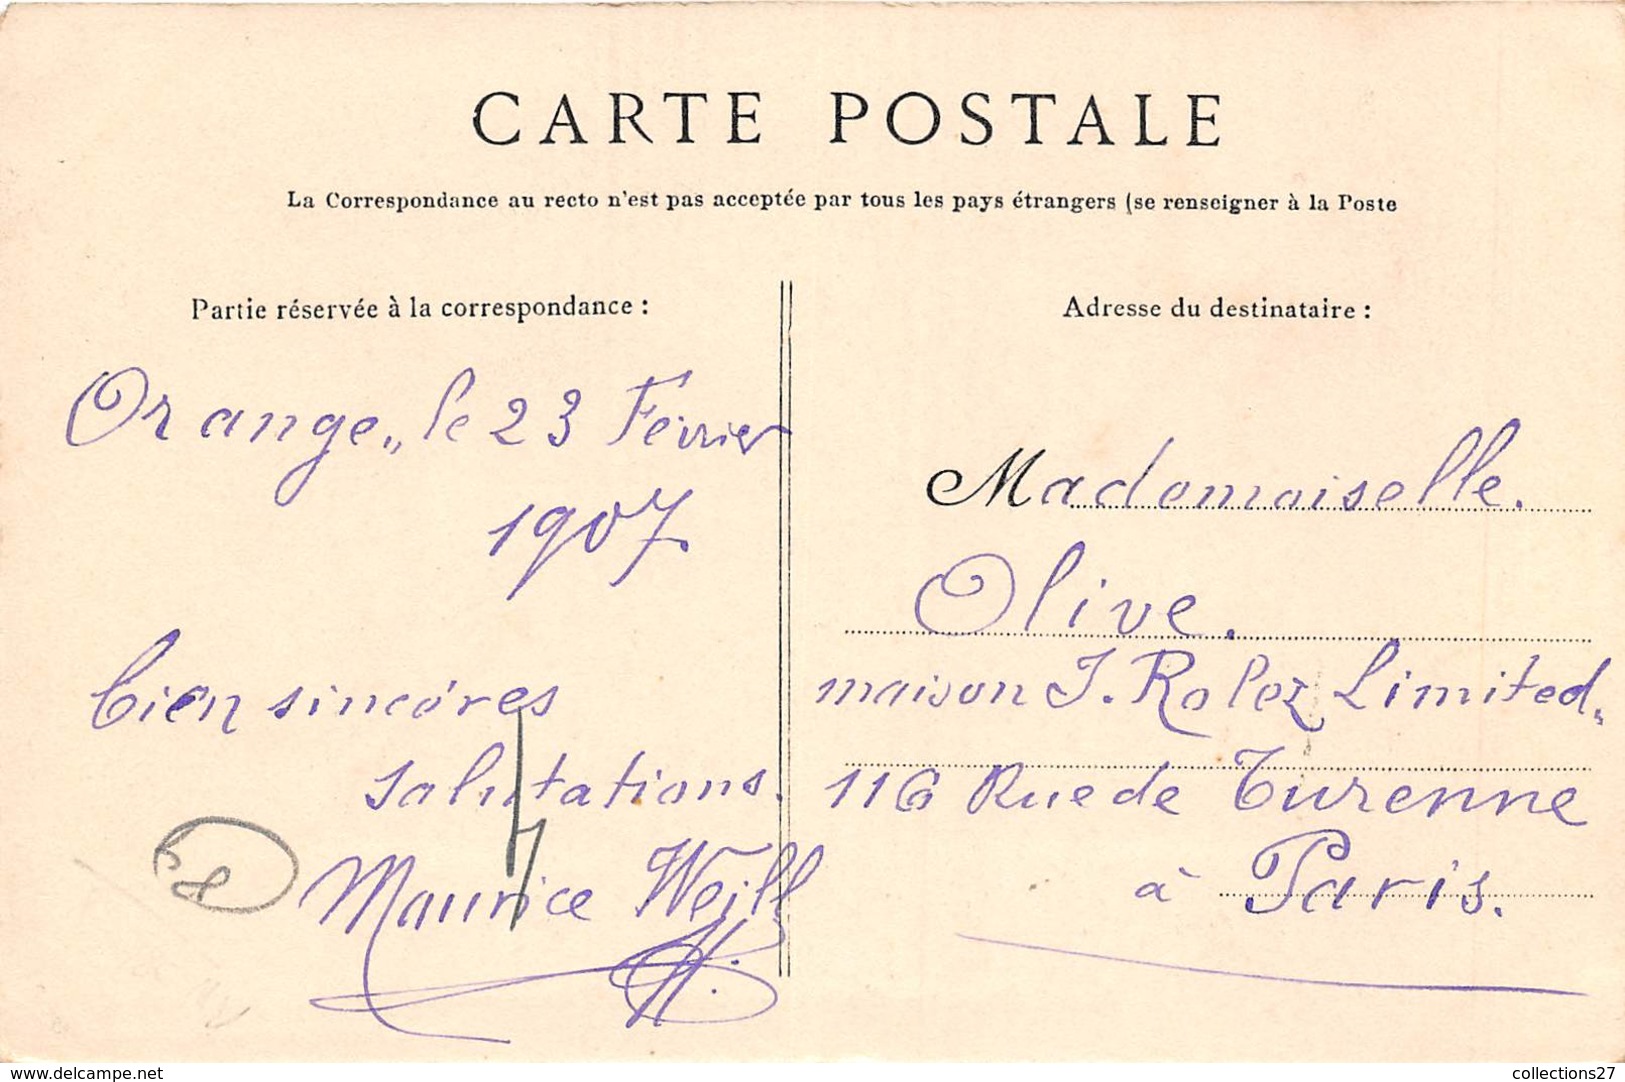 CARTE POSTALE
La Correspondance au recto n'est pas acceptée par tous les pays étrangers (se renseigner à la Poste
Partie réservée à la correspondance :
Orange, le 23 Février
1907
bien sincères
salutations.
Maurice Weill
Adresse du destinataire :
Mademoiselle.
Olive.
maison J. Limited.
116 Rue de Turenne
à Paris.
delcampe.net
collections27